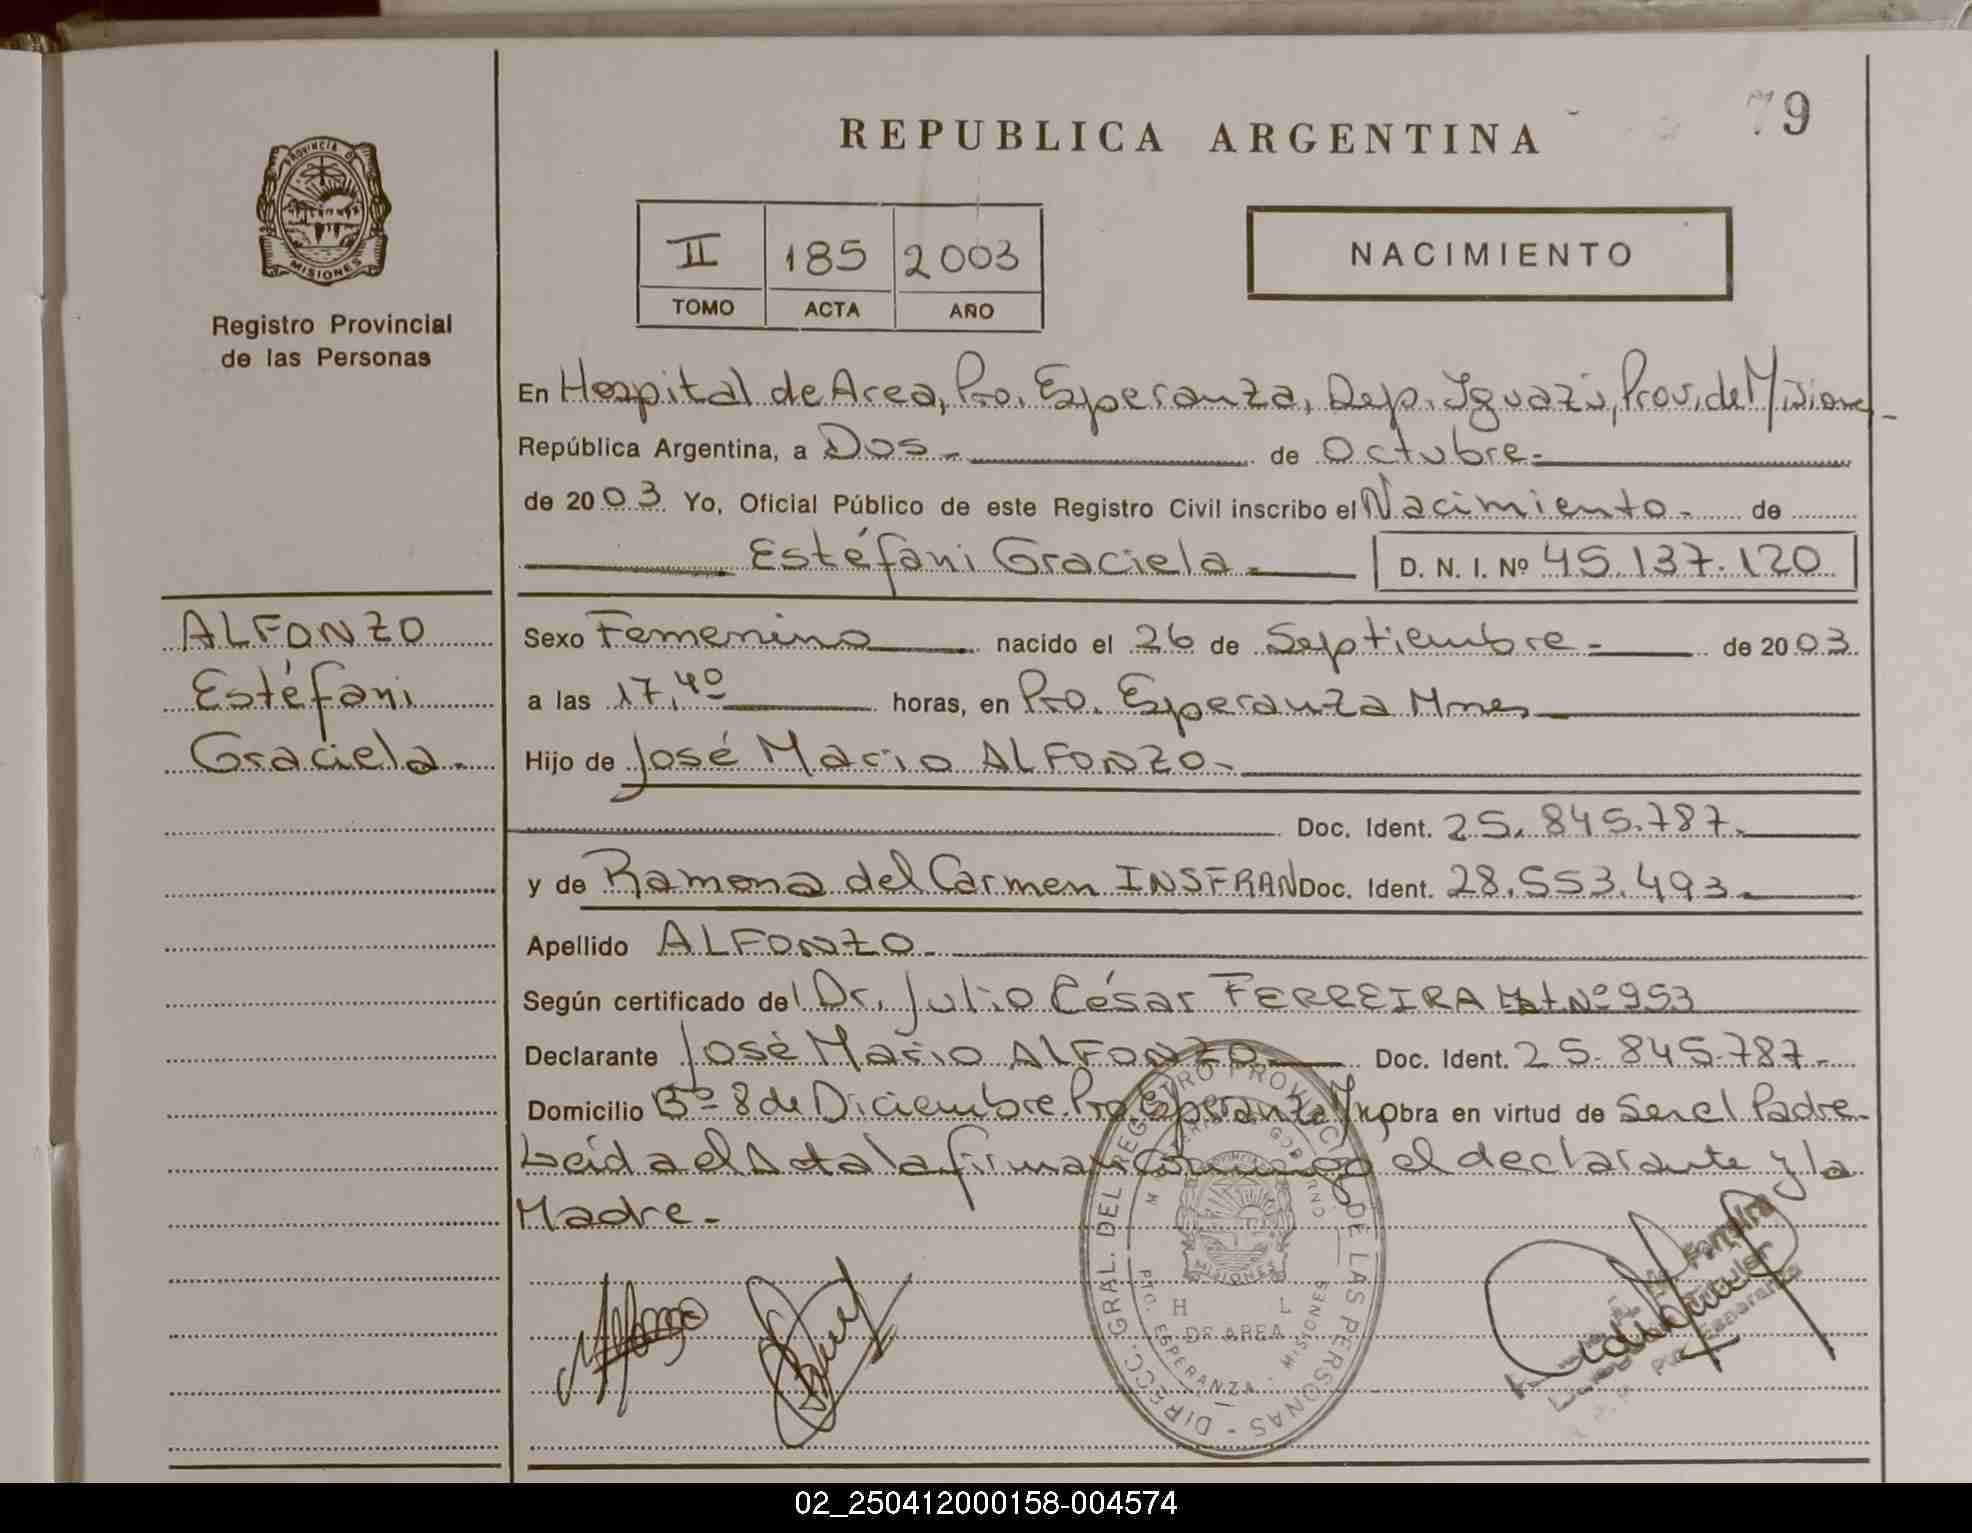 79
REPUBLICA ARGENTINA
PROVINCIA DE
MISIONES
Registro Provincial
de las Personas
II 185 2003
TOMO ACTA AÑO
NACIMIENTO
En Hospital de Area, Pto. Esperanza, Dep. Iguazú, Prov. de Misiones-
República Argentina, a Dos- de Octubre-
de 2003 Yo, Oficial Público de este Registro Civil inscribo el Nacimiento- de
Estéfani Graciela- D. N. I. Nº 45.137.120
ALFONZO
Estéfani
Graciela.-
Sexo Femenino nacido el 26 de Septiembre- de 2003
a las 17,40 horas, en Pto. Esperanza Mnes
Hijo de José Mario ALFONZO-
Doc. Ident. 25.845.787.
y de Ramona del Carmen INSFRAN Doc. Ident. 28.553.493-
Apellido ALFONZO-
Según certificado del Dr. Julio César FERREIRA Mat. Nº 953
Declarante José Mario ALFONZO Doc. Ident. 25.845.787-
Domicilio Bº 8 de Diciembre Pto Esperanza obra en virtud de Ser el Padre-
Leida el Acta la firman conmigo el declarante y la
Madre-
DIRECC. GRAL. DEL REGISTRO PROVINCIAL DE LAS PERSONAS
PTO. ESPERANZA - MISIONES
MISIONES
H L
DE AREA
02_250412000158-004574